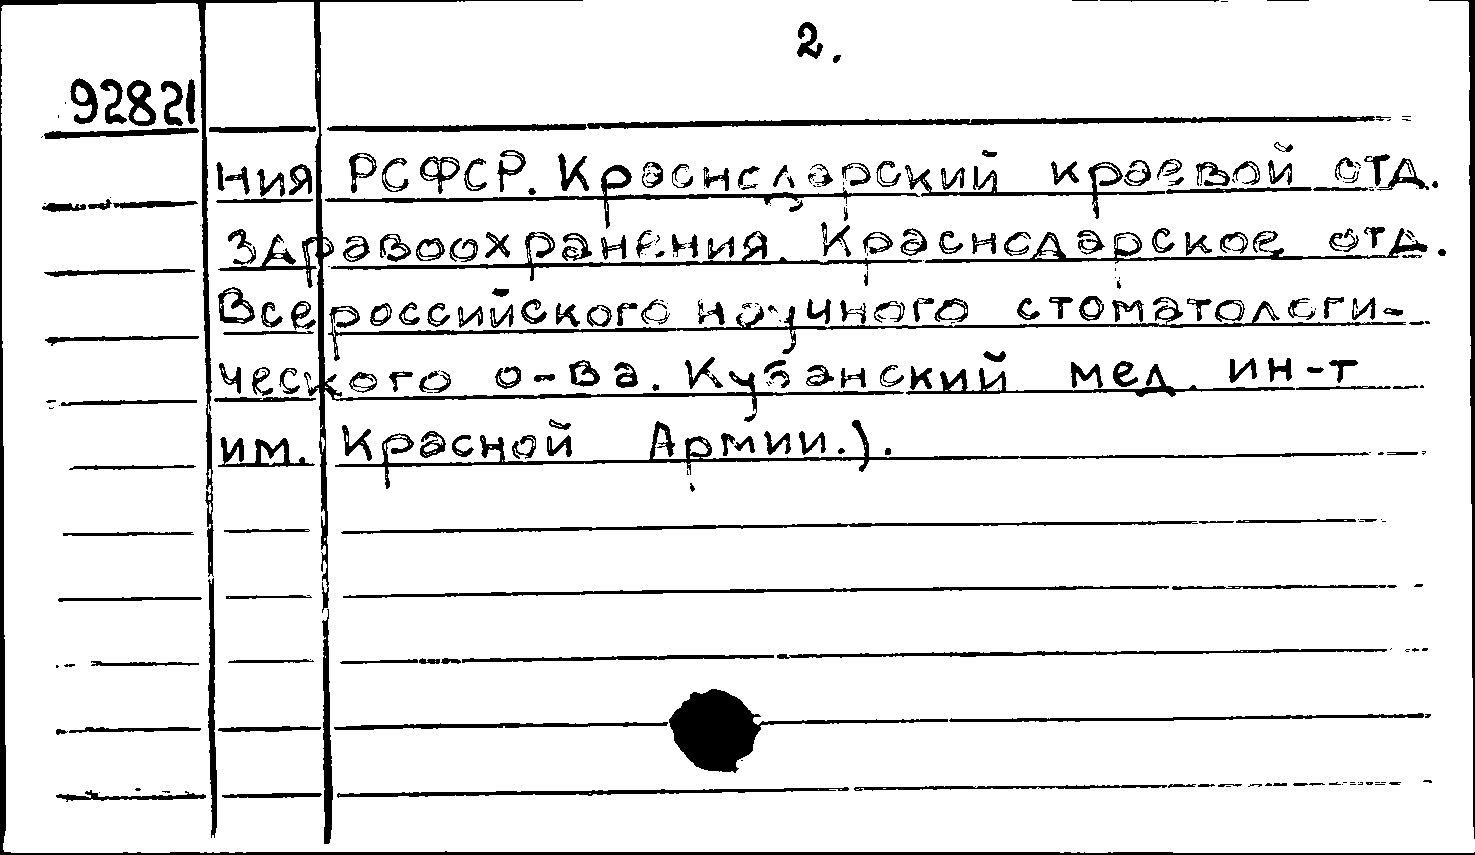 2.
92821
ния РСФСР. Краснодарский краевой отд.
здравоохранения. Краснодарское отд.
Всероссийского научного стоматологи-
ческого о-ва. Кубанский мед. ин-т
им. Красной Армии.).